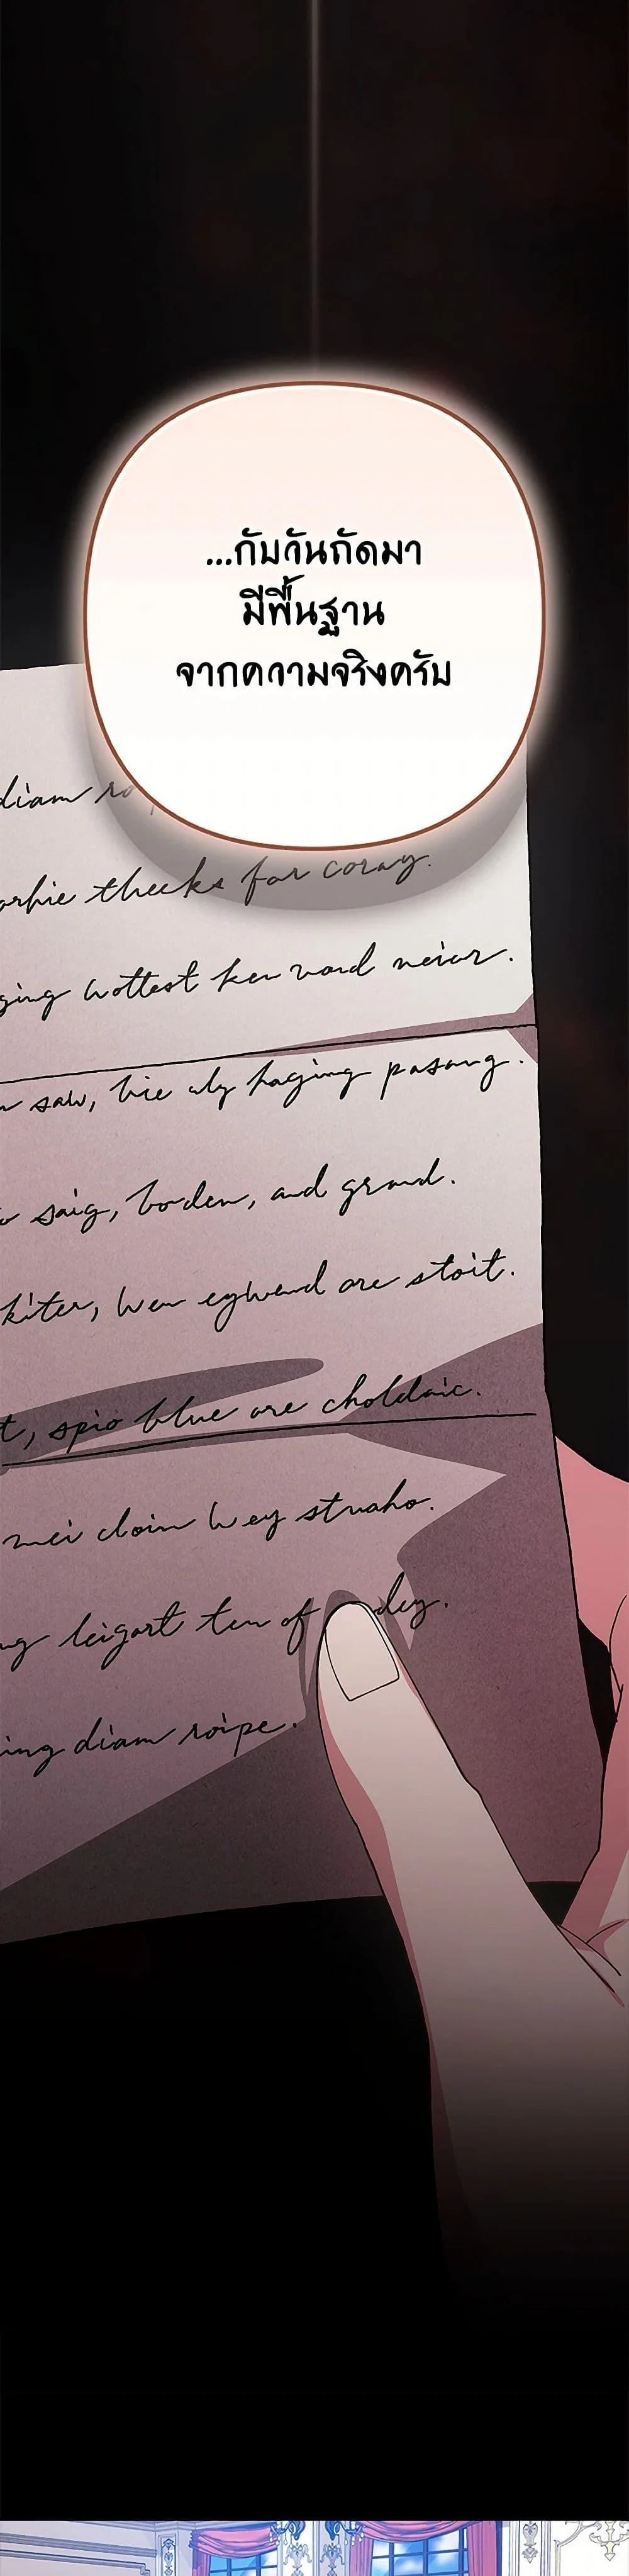 ...กับวันถัดมา
มีพื้นฐาน
จากความจริงครับ
diam ro
thecks for coray.
ging wottest ken vord neiur.
saw, bie uly haging pasang.
saig, borden, and grand.
kiter, wen eywend are stoit.
t, spio blue are choldaic.
mei cloin wey struaho.
ng leigart ten of dey.
ing diam roipe.